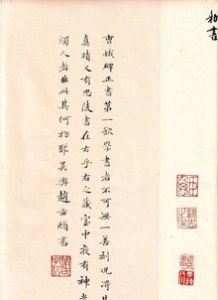 勅書
曹娥碑正書第一欲學書者不可無一善刻況得其
真蹟又有思陵書在右乎右之藏室中夜有神光
燭人者非此其何物耶吳興趙孟頫書